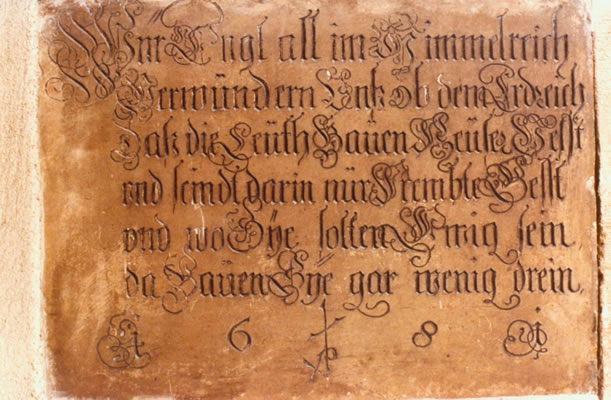 Wür Engl all im Himmelreich
Verwündern Unß Ob dem Erdreich
Daß die Leüth Bauen Heüser Vesst
und seindt darin nür Frembte Gesst
und wo Sÿe sollen Ewig sein
da Baüen Sÿe gar wenig drein,
6 8